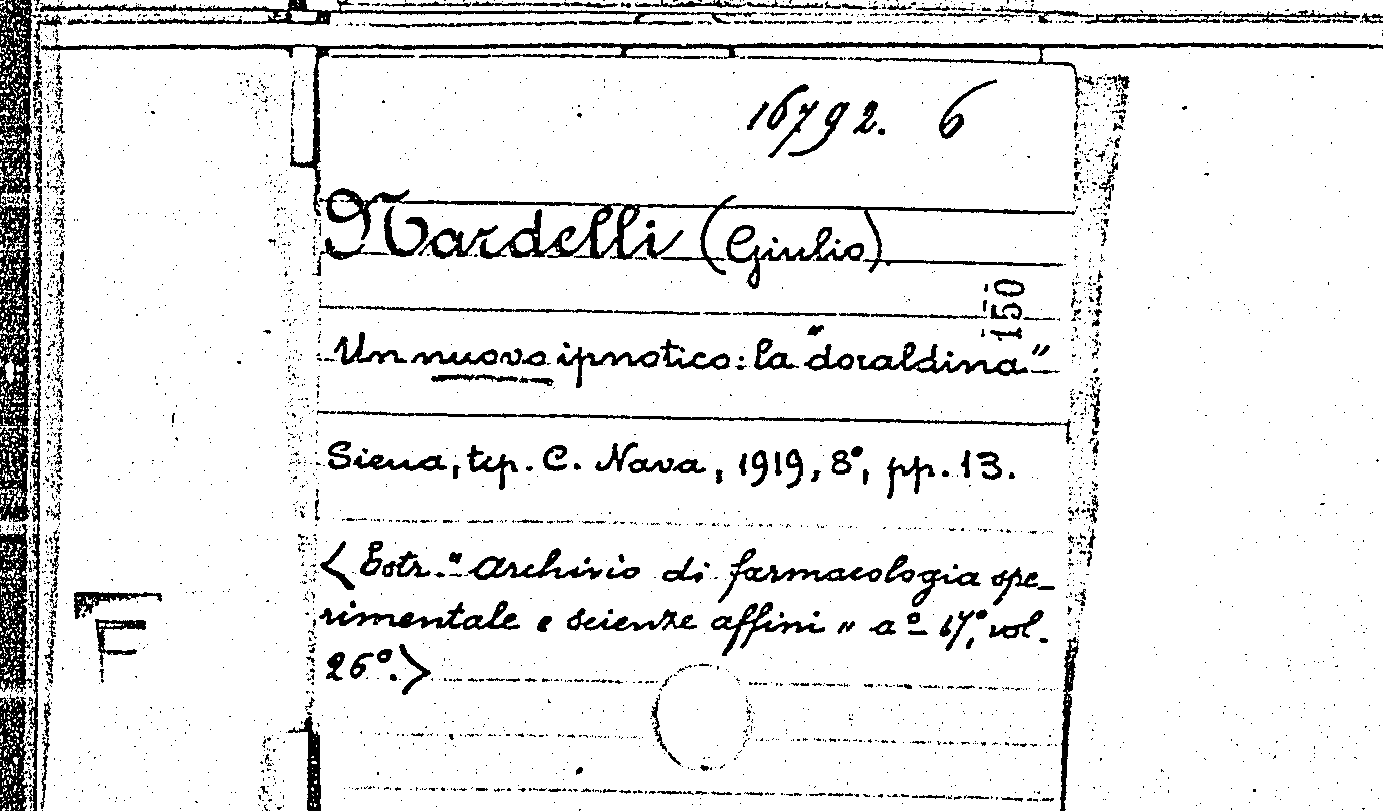 16792. 6
Nardelli (Giulio).
150
Un nuovo ipnotico: la "doraldina"
Siena, tip. C. Nava, 1919, 8°, pp. 13.
< Estr. " Archivio di farmacologia spe-
rimentale e scienze affini " aº 17°, vol.
26°.>
F